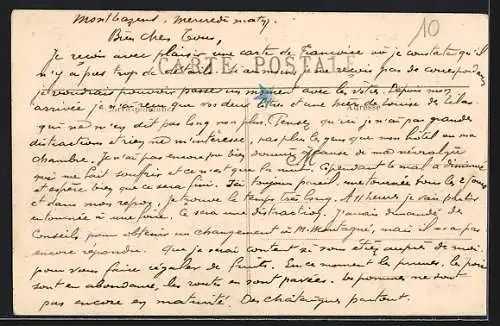 Montbazens, Mercredi matin
10
Bien chers Tous,
CARTE POSTALE
Je reçois avec plaisir une carte de Françoise où je constate qu'il
n'y a pas trop de détails. Si au moins je ne reçois pas de correspondance
je voudrais pouvoir passer un moment avec le vôtre. Depuis mon
Correspondance Adresse
arrivée je n'ai reçu que vos deux lettres et une de Louise de Lilas
qui ne m'en dit pas long non plus. Pensez qu'ici je n'ai pas grandes
distractions et rien ne m'intéresse, pas plus les gens que mon hôtel ou ma
chambre. Je n'ai pas encore bien dormi à cause de ma névralgie
qui me fait souffrir et ce n'est que la nuit. Cependant le mal a diminué
et espère bien que ce sera fini. Ici toujours pareil, une tournée tous les 2 jours
et dans mon repos, je trouve le temps très long. A 11 heures je vais partir
en tournée à une foire. Ce sera une distraction. J'avais demandé de
Conseils pour obtenir un changement à M. Montagné, mais il n'a pas
encore répondu. Que je serai content si vous étiez auprès de moi
pour vous faire régaler de fruits. En ce moment les prunes, les poires
sont en abondance, les routes en sont pavées. Les pommes ne sont
pas encore en maturité. Des châtaignes partout.